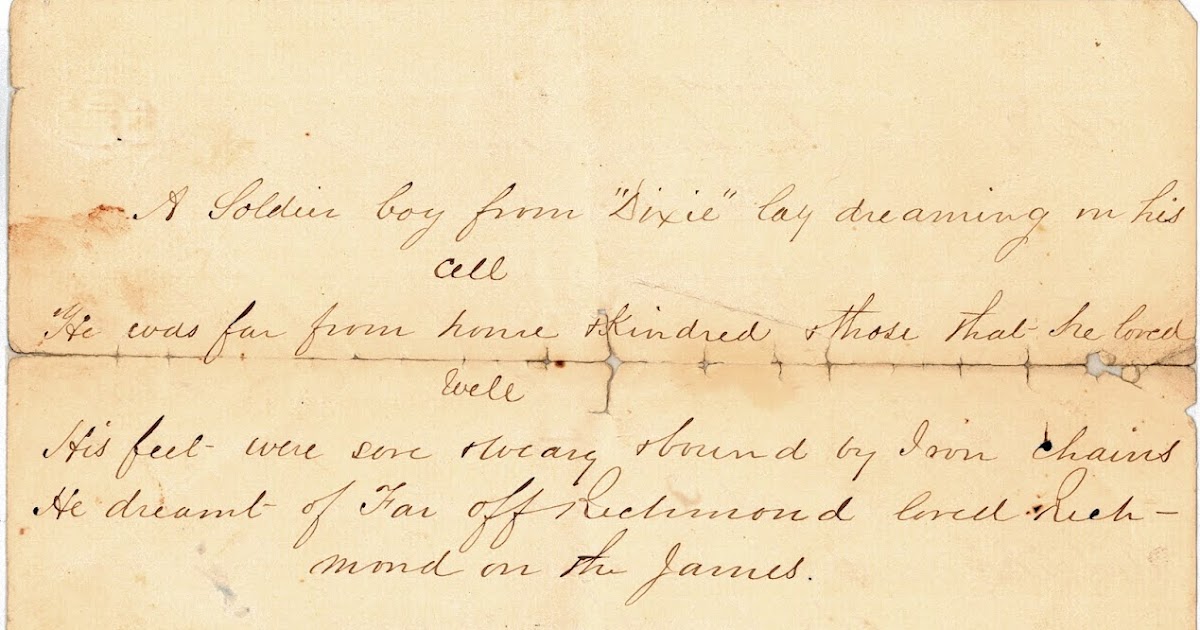 A Soldier boy from "Dixie" lay dreaming in his
Cell
He was far from home & Kindred & those that he loved
Well
His feet were sore & weary & bound by Iron chains
He dreamt of Far off Richmond loved Rich-
mond on the James.